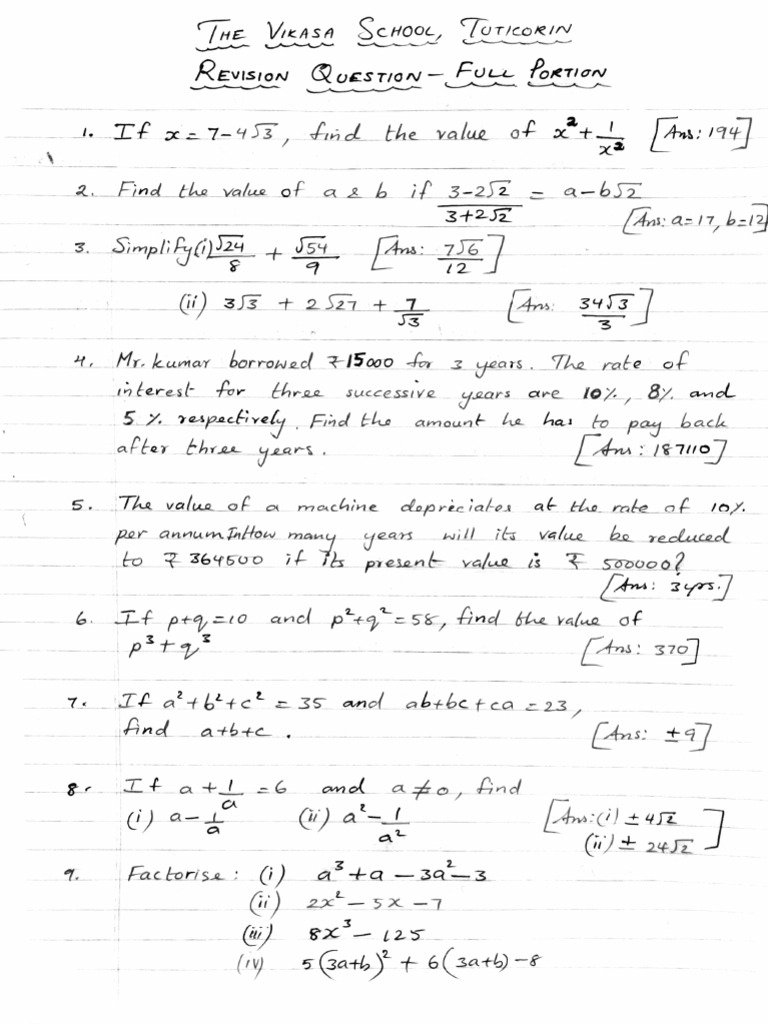 THE VIKASA SCHOOL, TUTICORIN
REVISION QUESTION – FULL PORTION
1. If x = 7-4√3, find the value of x² + 1/x² [Ans: 194]
2. Find the value of a & b if (3-2√2)/(3+2√2) = a-b√2
[Ans: a=17, b=12]
3. Simplify (i) √24/8 + √54/9 [Ans: 7√6/12]
(ii) 3√3 + 2√27 + 7/√3 [Ans: 34√3/3]
4. Mr. kumar borrowed ₹15000 for 3 years. The rate of
interest for three successive years are 10%, 8% and
5 % respectively. Find the amount he has to pay back
after three years. [Ans: 187110]
5. The value of a machine depreciates at the rate of 10%
per annum InHow many years will its value be reduced
to ₹ 364500 if its present value is ₹ 500000?
[Ans: 3yrs.]
6. If p+q=10 and p²+q²=58, find the value of
p³+q³ [Ans: 370]
7. If a²+b²+c² = 35 and ab+bc+ca=23,
find a+b+c. [Ans: ±9]
8. If a + 1/a = 6 and a≠0, find
(i) a - 1/a (ii) a² - 1/a² [Ans:(i) ± 4√2
(ii) ± 24√2]
9. Factorise: (i) a³+a-3a²-3
(ii) 2x²-5x-7
(iii) 8x³-125
(iv) 5(3a+b)² + 6(3a+b)-8